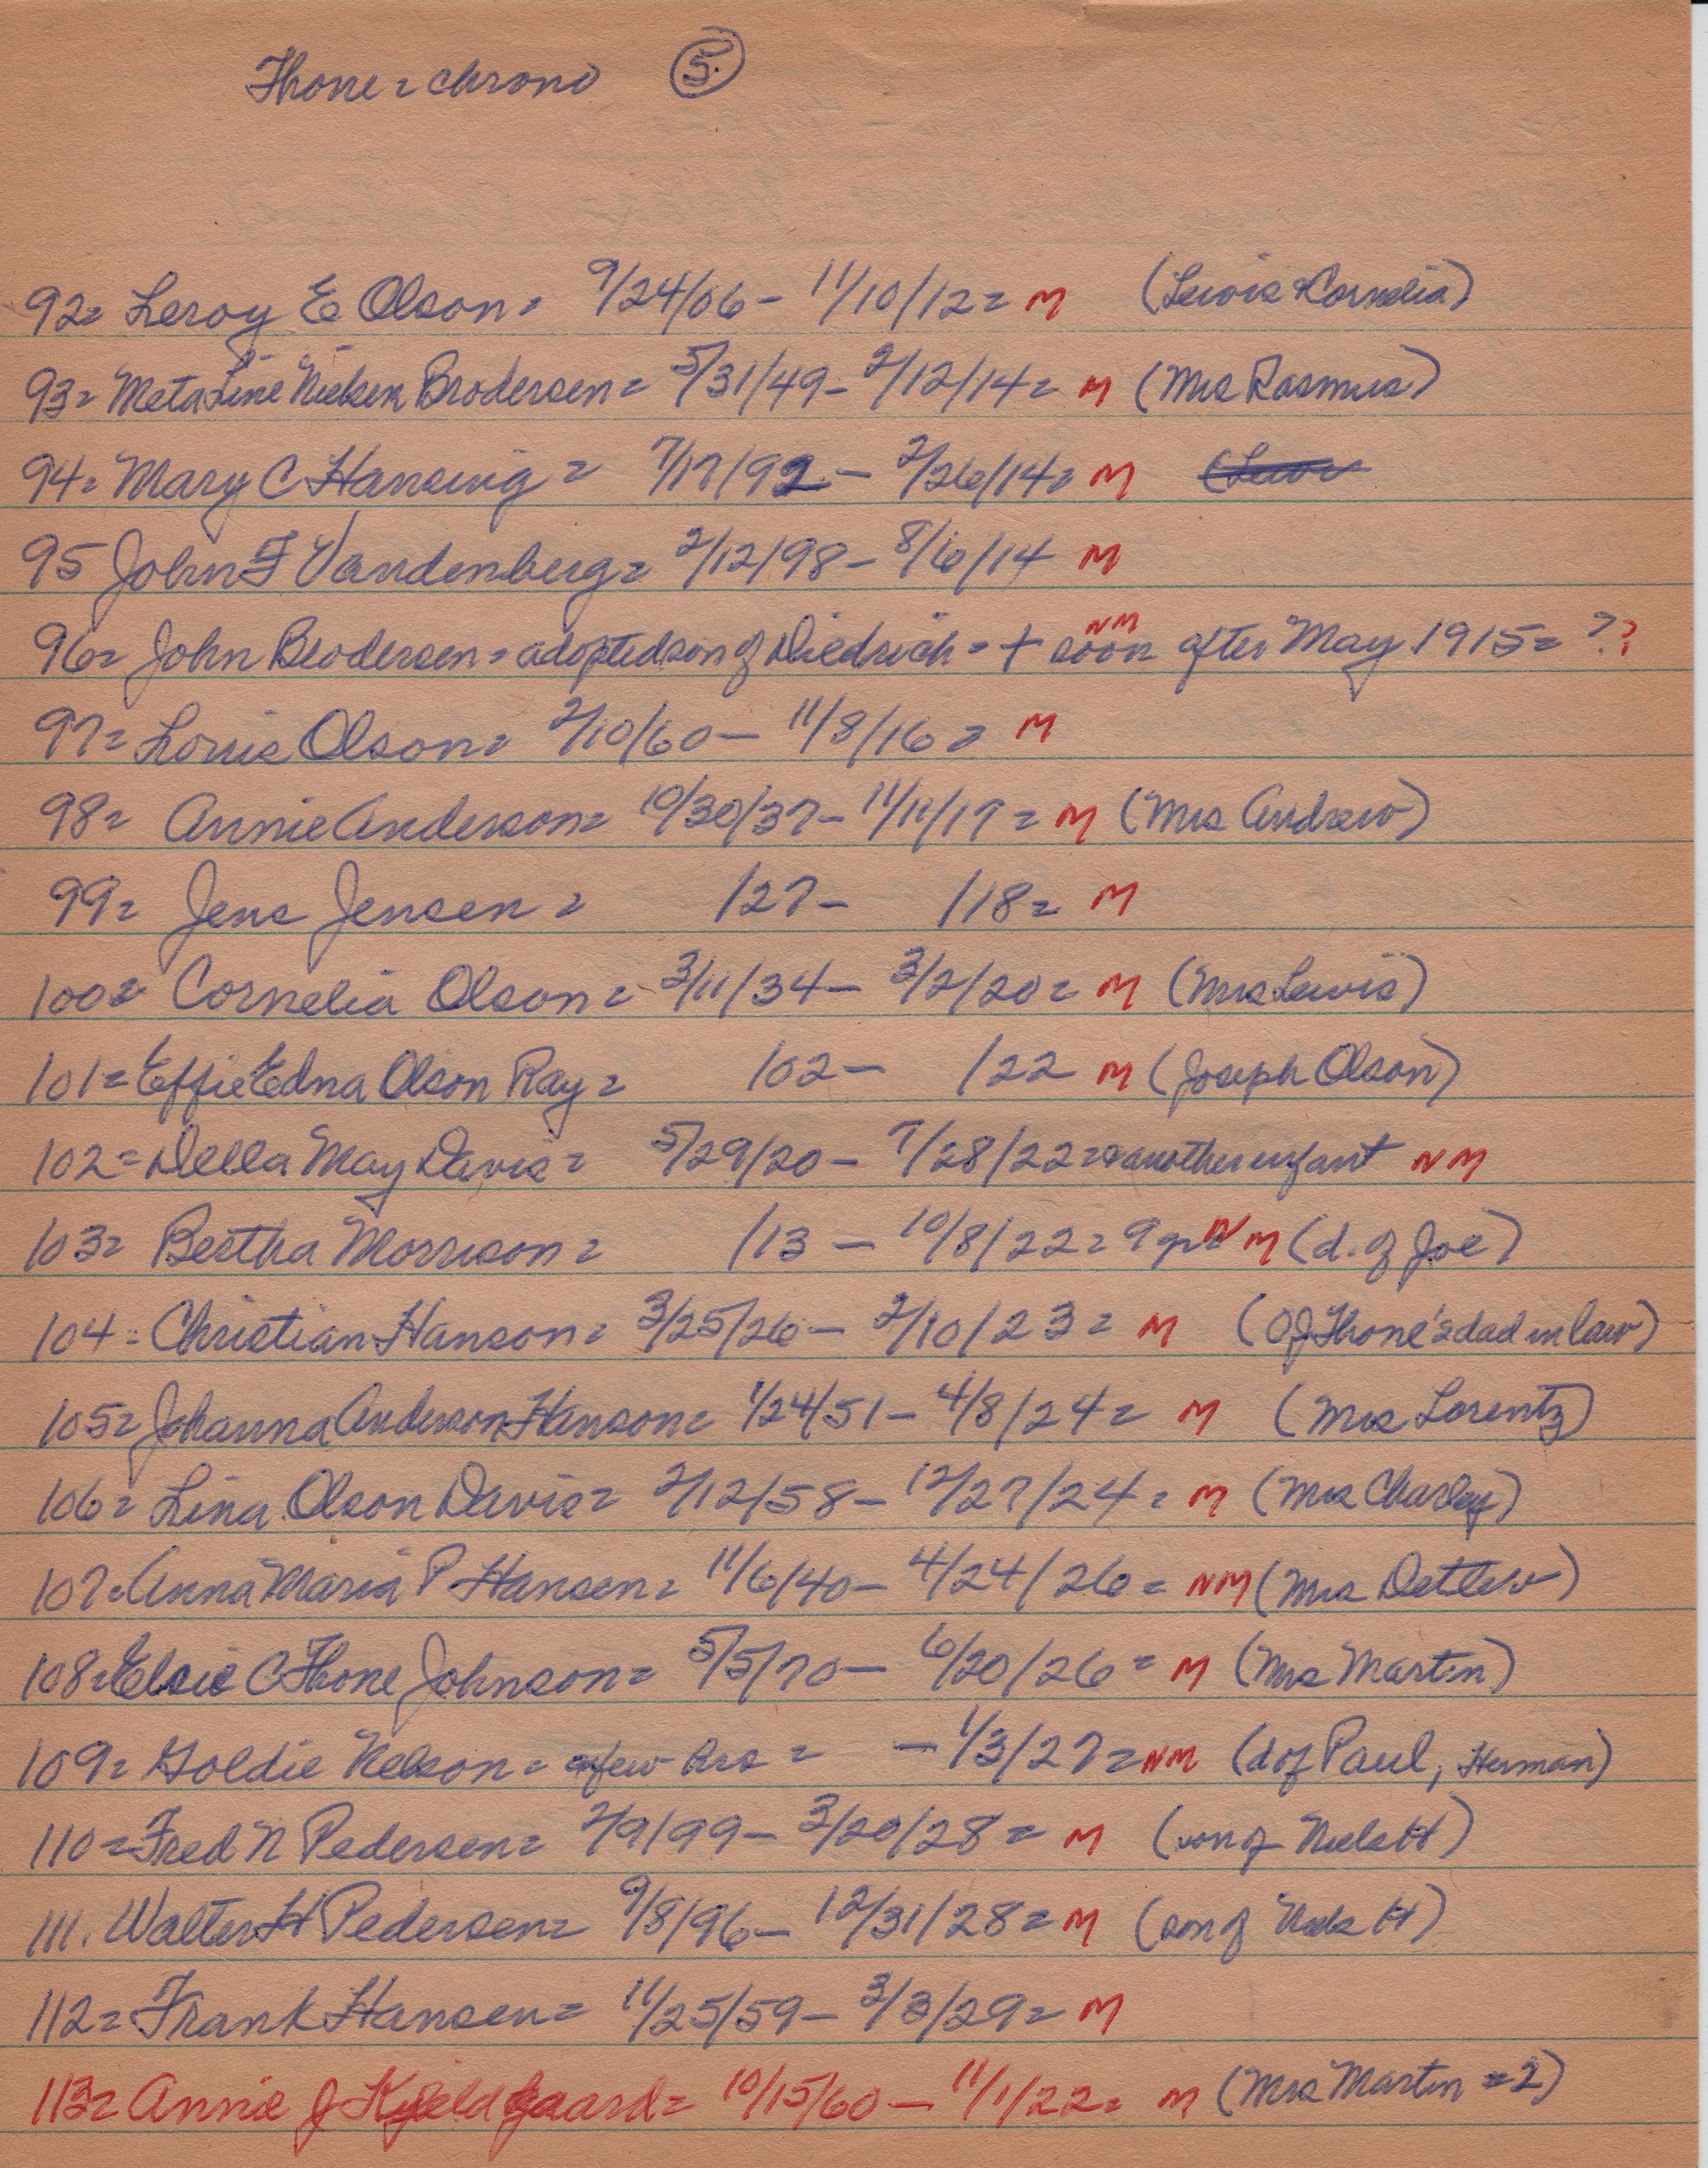 Thone = chrono (5.)
92= Leroy E Olson = 9/24/06 - 11/10/12 = M (Lewis & Cornelia)
93= Meta Line Nielsen Brodersen = 5/31/49 - 2/12/14 = M (Mrs Rasmus)
94= Mary C Hansing = 7/17/92 - 2/26/14 = M
95 John F Vandenberg = 2/12/98 - 8/6/14 M
96= John Brodersen = adopted son of Diedrich = + soon after May 1915 = ?? NM
97= Louis Olson = 2/10/60 - 11/8/16 = M
98= Annie Anderson = 10/30/37 - 11/11/17 = M (Mrs Andrew)
99= Jens Jensen = /27 - /18 = M
100= Cornelia Olson = 3/11/34 - 3/2/20 = M (Mrs Lewis)
101= Effie Edna Olson Ray = /02 - /22 M (Joseph Olson)
102= Della May Davis = 5/29/20 - 7/28/22 = & another infant NM
103= Bertha Morrison = /13 - 10/8/22 = 9 NM (d. of Joe)
104= Christian Hanson = 3/25/26 - 2/10/23 = M (Of Thone's dad in law)
105= Johanna Anderson Hanson = 1/24/51 - 4/8/24 = M (Mrs Lorentz)
106= Lina Olson Davis = 2/12/58 - 12/27/24 = M (Mrs Charley)
107= Anna Maria P Hansen = 11/6/40 - 4/24/26 = NM (Mrs Detlew)
108= Elsie C Thone Johnson = 5/5/70 - 6/20/26 = M (Mrs Martin)
109= Goldie Nelson = few hrs = - 1/3/27 = NM (d of Paul, Herman)
110= Fred N Pedersen = 2/9/99 - 3/20/28 = M (son of Niels H)
111. Walter H Pedersen = 9/8/96 - 12/31/28 = M (son of Niels H)
112= Frank Hansen = 11/25/59 - 3/3/29 = M
113= Annie J Kjeldgaard = 10/15/60 - 11/1/22 = M (Mrs Martin = 2)